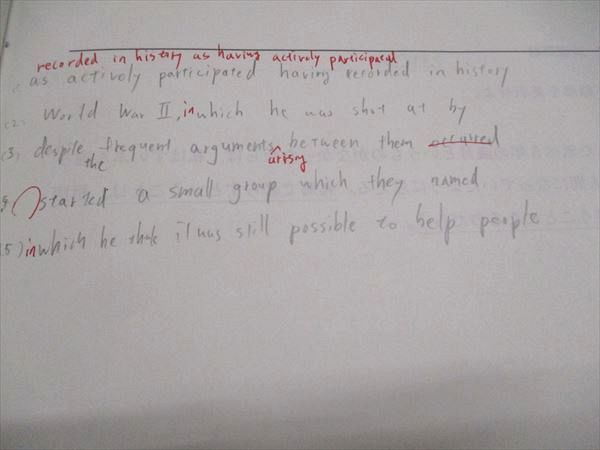 recorded in history as having actively participated
as actively participated having recorded in history
(2) World War II, in which he was shot at by
(3) despite frequent arguments between them occurred
the arising
started a small group which they named
(5) in which he it was still possible to help people